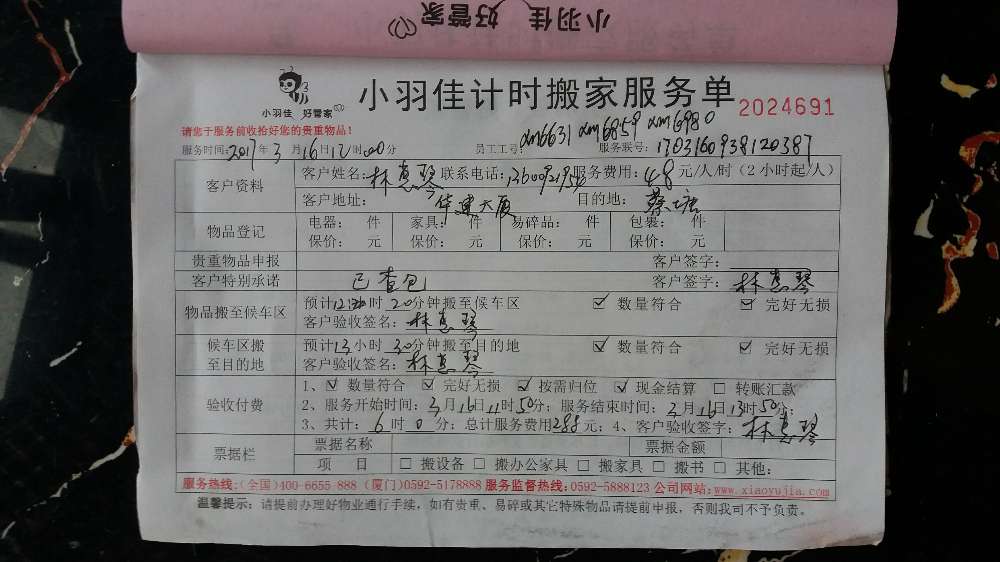 小羽佳 好管家
小羽佳 好管家
小羽佳计时搬家服务单
2024691
请您于服务前收拾好您的贵重物品！
服务时间：2017年3月16日12时00分 员工工号：xm6631 xm6859 xm6980 服务联号：1703160938120387
客户资料 客户姓名：林惠琴 联系电话： 服务费用：48元/人/时（2小时起/人）
客户地址：华建大厦 目的地：蔡塘
物品登记 电器： 件 家具： 件 易碎品： 件 包裹： 件
保价： 元 保价： 元 保价： 元 保价： 元
贵重物品申报 客户签字：
客户特别承诺 已查包 客户签字：林惠琴
物品搬至候车区 预计 时20分钟搬至候车区 ☑ 数量符合 ☑ 完好无损
客户验收签名：林惠琴
候车区搬至目的地 预计13小时30分钟搬至目的地 ☑ 数量符合 ☑ 完好无损
客户验收签名：林惠琴
验收付费 1、☑ 数量符合 ☑ 完好无损 ☑ 按需归位 ☑ 现金结算 □ 转账汇款
2、服务开始时间：3月16日11时50分；服务结束时间：3月16日13时50分；
3、共计：6时0分；总计服务费用288元；4、客户验收签字：林惠琴
票据栏 票据名称 票据金额
项 目 □ 搬设备 □ 搬办公家具 □ 搬家具 □ 搬书 □ 其他：
服务热线：(全国)400-6655 888 (厦门)0592-5178888 服务监督热线：0592-5888123 公司网站：www.xiaoyujia.com
温馨提示：请提前办理好物业通行手续，如有贵重、易碎或其它特殊物品请提前申报，否则我司不予负责。